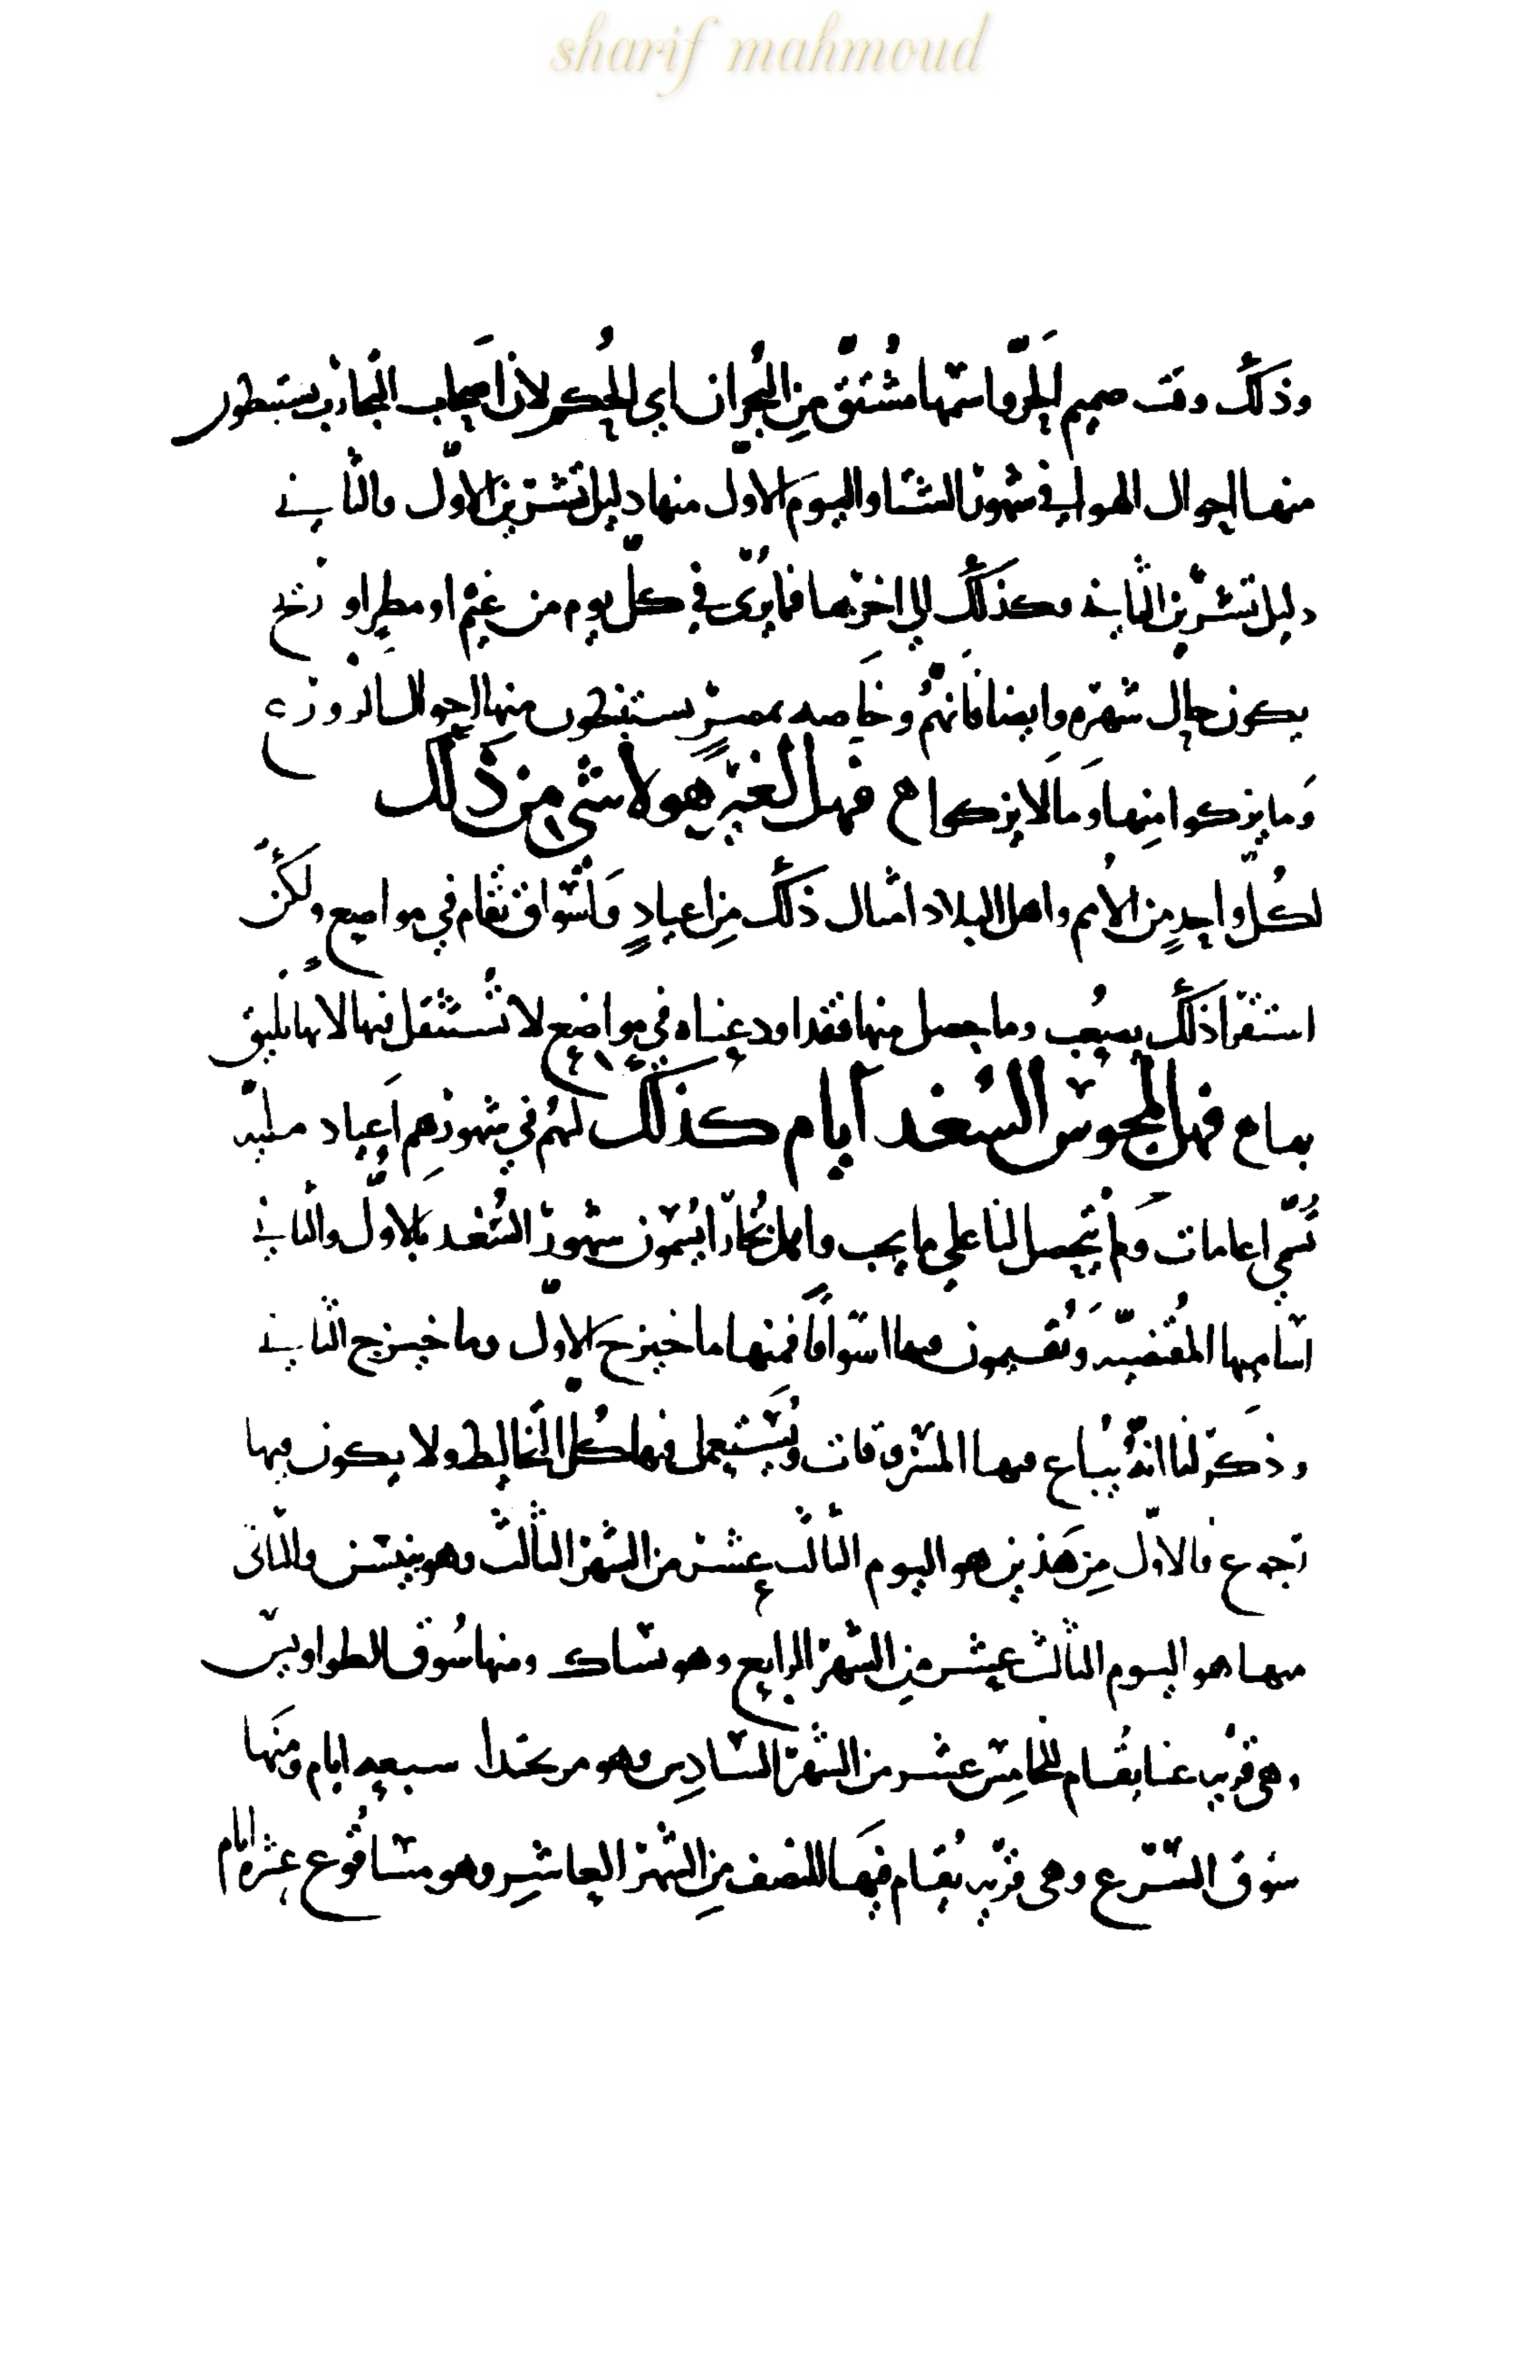 sharif mahmoud
وذلك وقت صميم الحرّ واسمها مشتق من البحران اي الحكم لان اصحاب التجارب يستنبطون
منها احوال الهوا في شهور الشتا واليوم الاول منها دليل تشرين الاوّل والثاني
دليل تشرين الثاني وكذلك الي اخرها فما يرى في كلّ يوم من غيم او مطر او ريح
يكون حال شهره وايضا فانهم وخاصه بمصر يستنبطون منها احوال الزروع
وما يزكوا منها وما لا يزكوا ح فهل لغير هولا شي من ذلك
لكل واحد من الامم واهل البلاد امثال ذلك من اعياد واسواق تقام في مواضع ولكنّ
استقرا ذلك يصعب وما حصل منها فقد اودعناه في مواضع لا تستثقل فيها لانها تليق
بها ح فهل لمجوس السغد ايام كذلك لهم في شهورهم اعياد مليه
تسمّي اعامات ولم يتحصل لنا علي ما يجب واهل بخارا يسمون شهور السغد بالاوّل والثاني
اساميها المقتضبه ويقيمون فيها اسواقا فمنها ماخيرج الاوّل وماخيرج الثاني
وذكر لنا انه يباع فيها المسروقات ويستعمل فيها كل التخاليط ولا يكون فيها
رجوع فالاوّل من هذين هو اليوم الثالث عشر من الشهر الثالث وهو نيسن والثاني
منها هو اليوم الثالث عشر من الشهر الرابع وهو بساك ومنها سوق الطواويس
وهي قريه عنا يقام للخامس عشر من الشهر السادس وهو مر يخندا سبعه ايام ومنها
سوق الشرع وهي قريه يقام فيها للنصف من الشهر العاشر وهو مسافوع عشره ايام